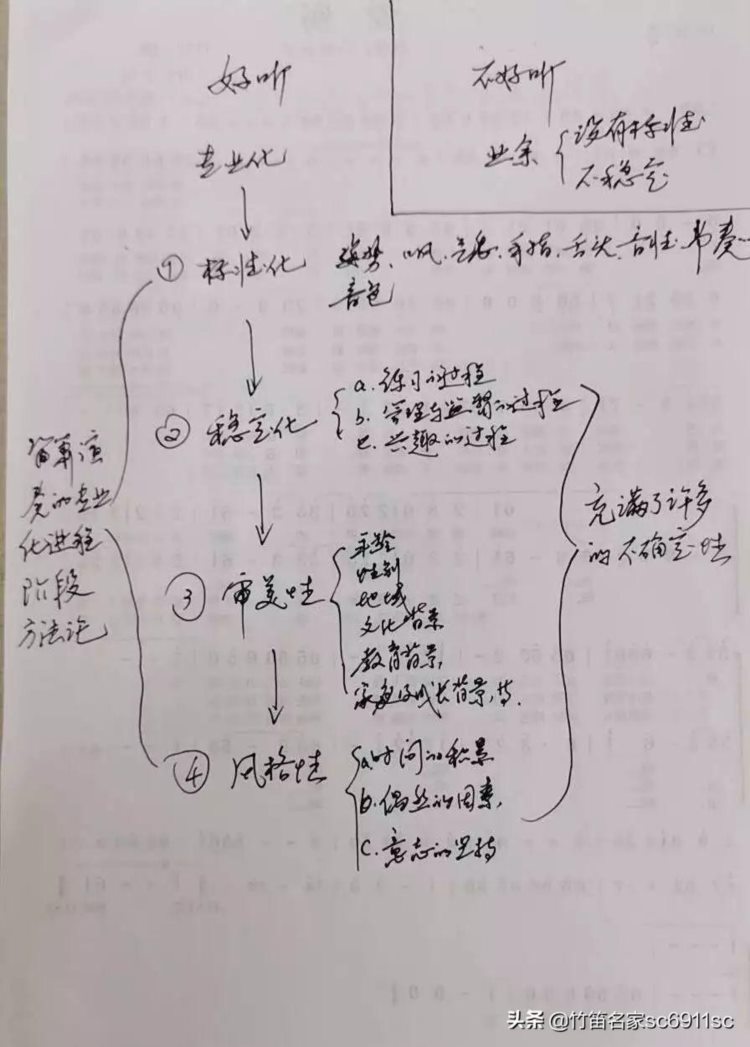 好听
不好听
专业化
业余
没有标准
不稳定
① 标准化
姿势、口风、气息、手指、舌头、音准、节奏
音色
② 稳定化
a. 练习的过程
b. 管理与监督的过程
c. 兴趣的过程
充满了许多
的不确定性
演
奏的专业
化进程
阶段
方法论
③ 审美性
年龄
性别
地域
文化背景
教育背景
家庭及成长背景,等.
④ 风格性
a. 时间的积累
b. 偶然的因素,
c. 意志的坚持
头条 @竹笛名家sc6911sc